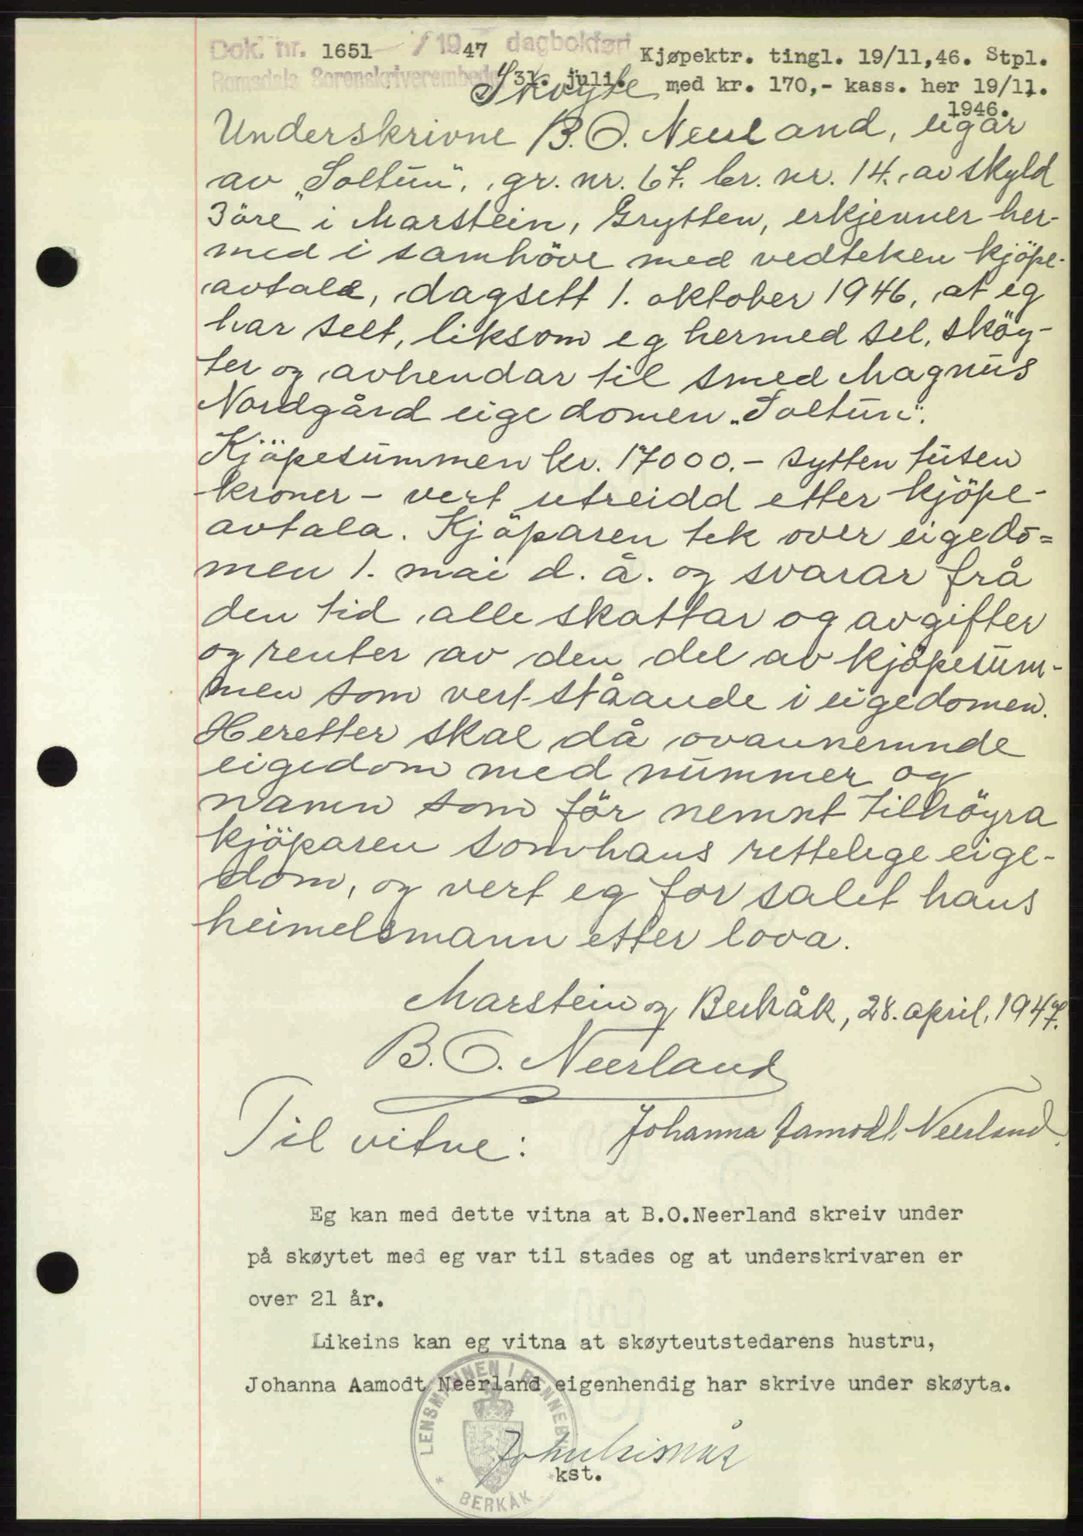 Dok. nr. 1651 / 1947 dagbokført
Romsdals Sorenskriverembede 31. juli.
Kjøpektr. tingl. 19/11,46. Stpl.
med kr. 170,- kass. her 19/11.
1946.
Skøyte
Underskrivne B. O. Neerland, eigar
av "Soltun", gr. nr. 67. br. nr. 14. av skyld
3 öre i Marstein, Grytten, erkjenner her-
med i samhöve med vedteken kjöpe-
avtale, dagsett 1. oktober 1946, at eg
har selt, liksom eg hermed sel, sköy-
ter og avhendar til smed Magnus
Nordgård eigedomen "Soltun".
Kjöpesummen kr. 17000.- sytten tusen
kroner - vert utreidd etter kjöpe-
avtala. Kjöparen tek over eigedo=
men 1. mai d. å. og svarar frå
den tid alle skattar og avgifter
og renter av den del av kjöpesum-
men som vert ståande i eigedomen.
Heretter skal då ovannemnde
eigedom med nummer og
namn som för nemnt tilhöyra
kjöparen som hans rettelege eige-
dom, og vert eg for salet hans
heimelsmann etter lova.
Marstein og Berkåk, 28. april. 1947.
B. O. Neerland
Til vitne: Johanna Aamodt Neerland.
Eg kan med dette vitna at B.O.Neerland skreiv under
på skøytet med eg var til stades og at underskrivaren er
over 21 år.
Likeins kan eg vitna at skøyteutstedarens hustru,
Johanna Aamodt Neerland eigenhendig har skrive under skøyta.
LENSMANNEN I RENNEBU
kst.
BERKÅK